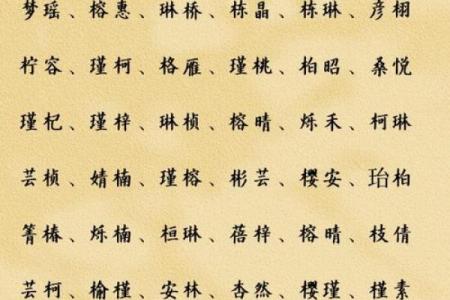 梦瑶、榕惠、琳桥、栋晶、栋琳、彦栩
柠容、瑾柯、格雁、瑾桃、柏昭、桑悦
瑾杞、瑾梓、琳桢、榕晴、烁禾、柯琳
芸桢、婧楠、瑾榕、彬芸、樱安、珆柏
箐椿、烁楠、桓琳、蓓梓、榕晴、枝倩
芸柯、榆槿、安林、杏然、樱瑾、槿素